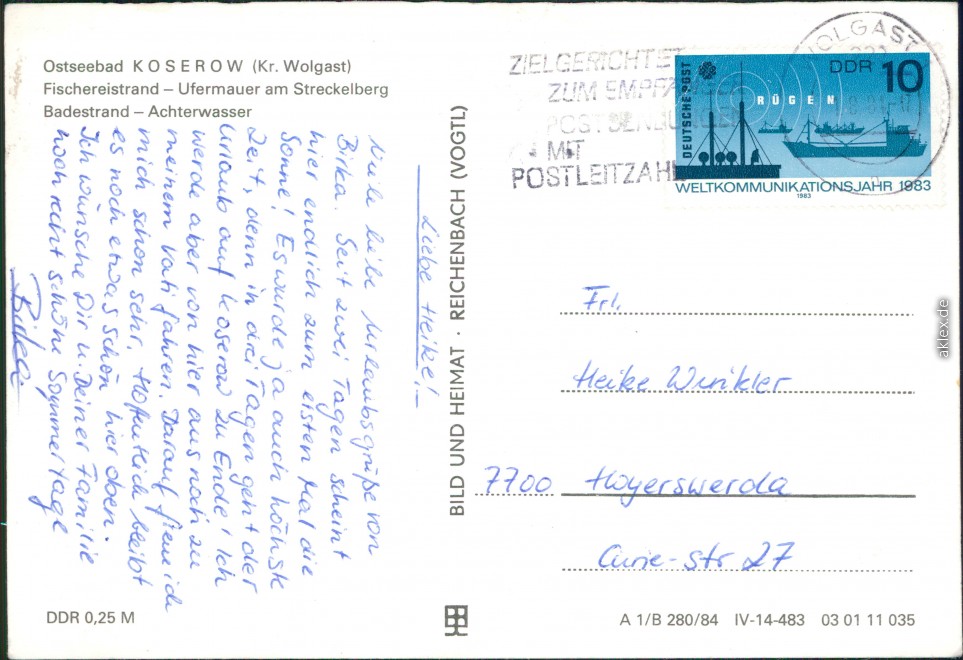 Ostseebad KOSEROW (Kr. Wolgast)
Fischereistrand – Ufermauer am Streckelberg
Badestrand – Achterwasser
Liebe Heike!
Viele liebe Urlaubsgrüße von
Birka. Seit zwei Tagen scheint
hier endlich zum ersten Mal die
Sonne! Es wurde ja auch höchste
Zeit, denn in drei Tagen geht der
Urlaub auf Koserow zu Ende! Ich
werde aber von hier aus noch zu
meinem Vati fahren. Darauf freue ich
mich schon sehr. Hoffentlich bleibt
es noch etwas schön hier oben.
Ich wünsche Dir u. Deiner Familie
noch recht schöne Sommertage
Birka
BILD UND HEIMAT · REICHENBACH (VOGTL)
ZIELGERICHTET
ZUM
MIT
POSTLEITZAHL
WOLGAST
DEUTSCHE POST
DDR 10
RÜGEN
WELTKOMMUNIKATIONSJAHR 1983
1983
Frl.
Heike Winkler
7700 Hoyerswerda
Curie-str 27
DDR 0,25 M
A 1/B 280/84 IV-14-483 03 01 11 035
aklex.de